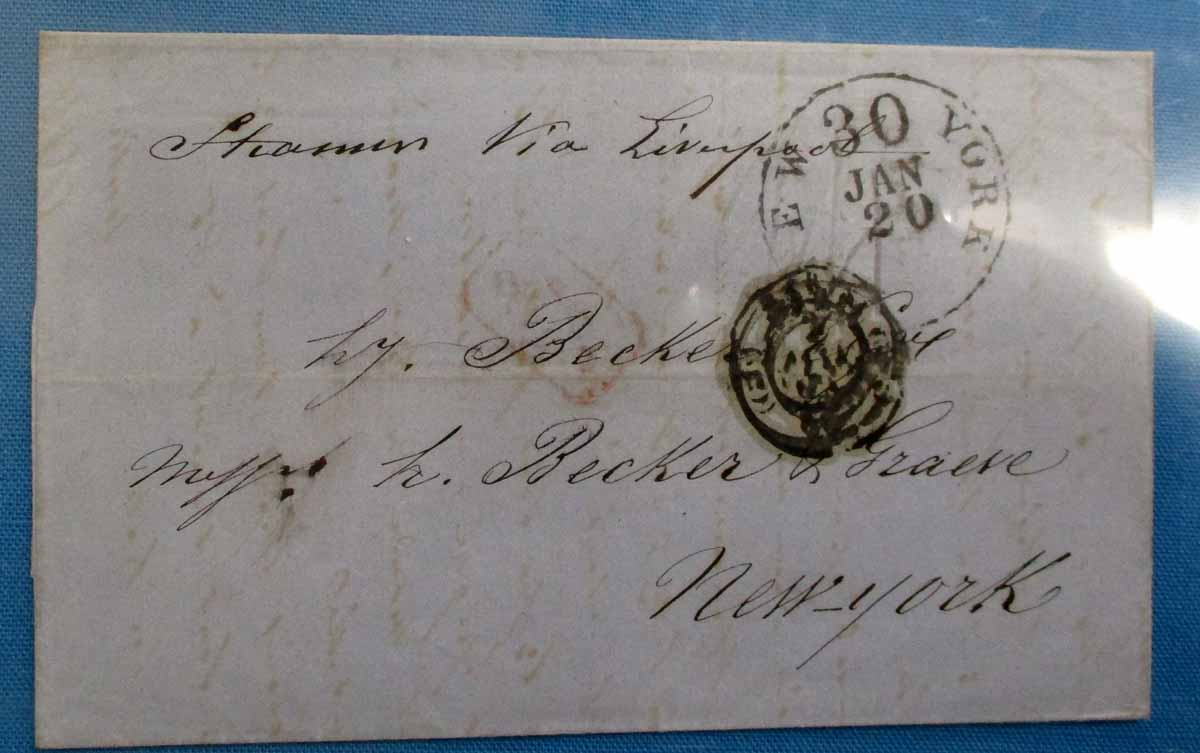 Steamer Via Liverpool
NEW YORK
30
JAN
20
hy. Becker
Messrs. h. Becker & Graeve
New-york